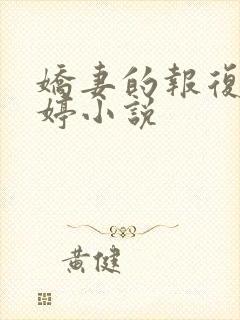 嬌妻的報復
婷小説
黃健